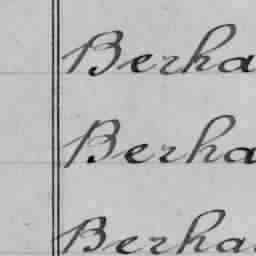 Berha
Berha
Berha